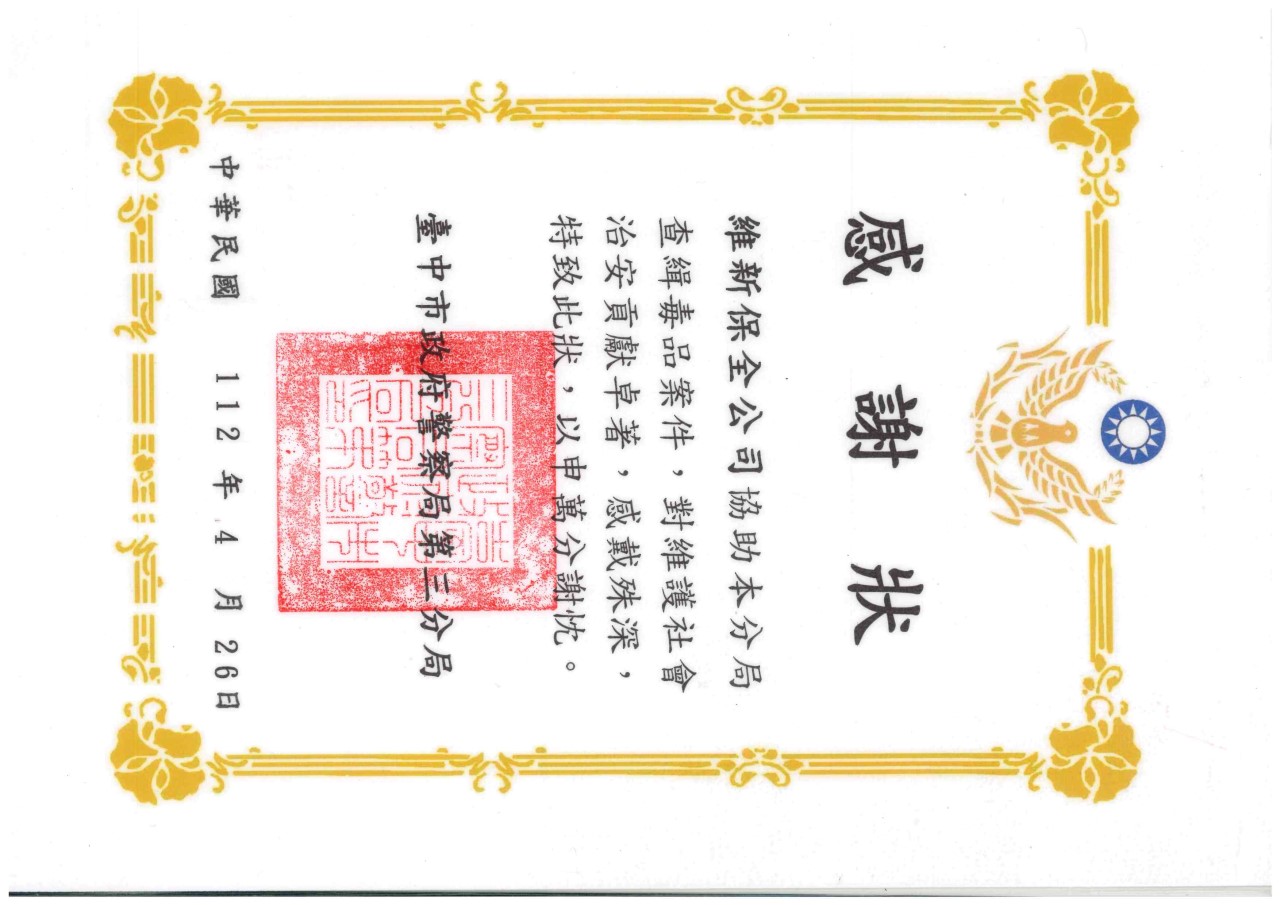 感謝狀
維新保全公司協助本分局
查緝毒品案件，對維護社會
治安貢獻卓著，感戴殊深，
特致此狀，以申萬分謝忱。
臺中市政府警察局第三分局
中華民國 112 年 4 月 26日